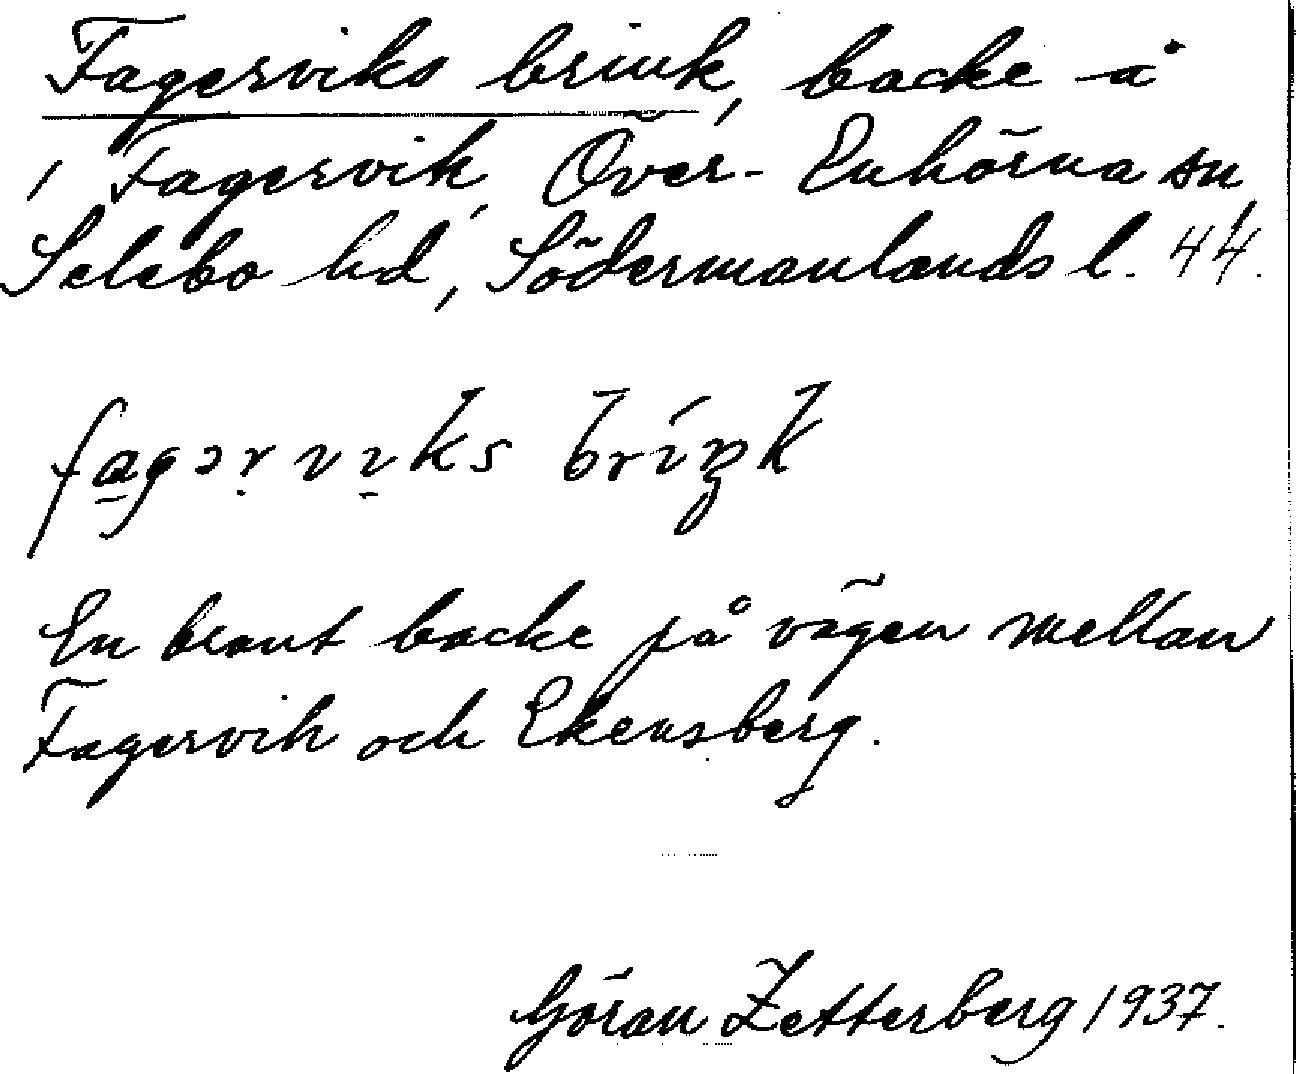 Fagerviks brink, backe å
1 Fagervik, Över-Enhörna sn,
Selebo hd, Södermanlands l. 44.
fagɔrvıks bríŋk
En brant backe på vägen mellan
Fagervik och Ekensberg.
Göran Zetterberg 1937.